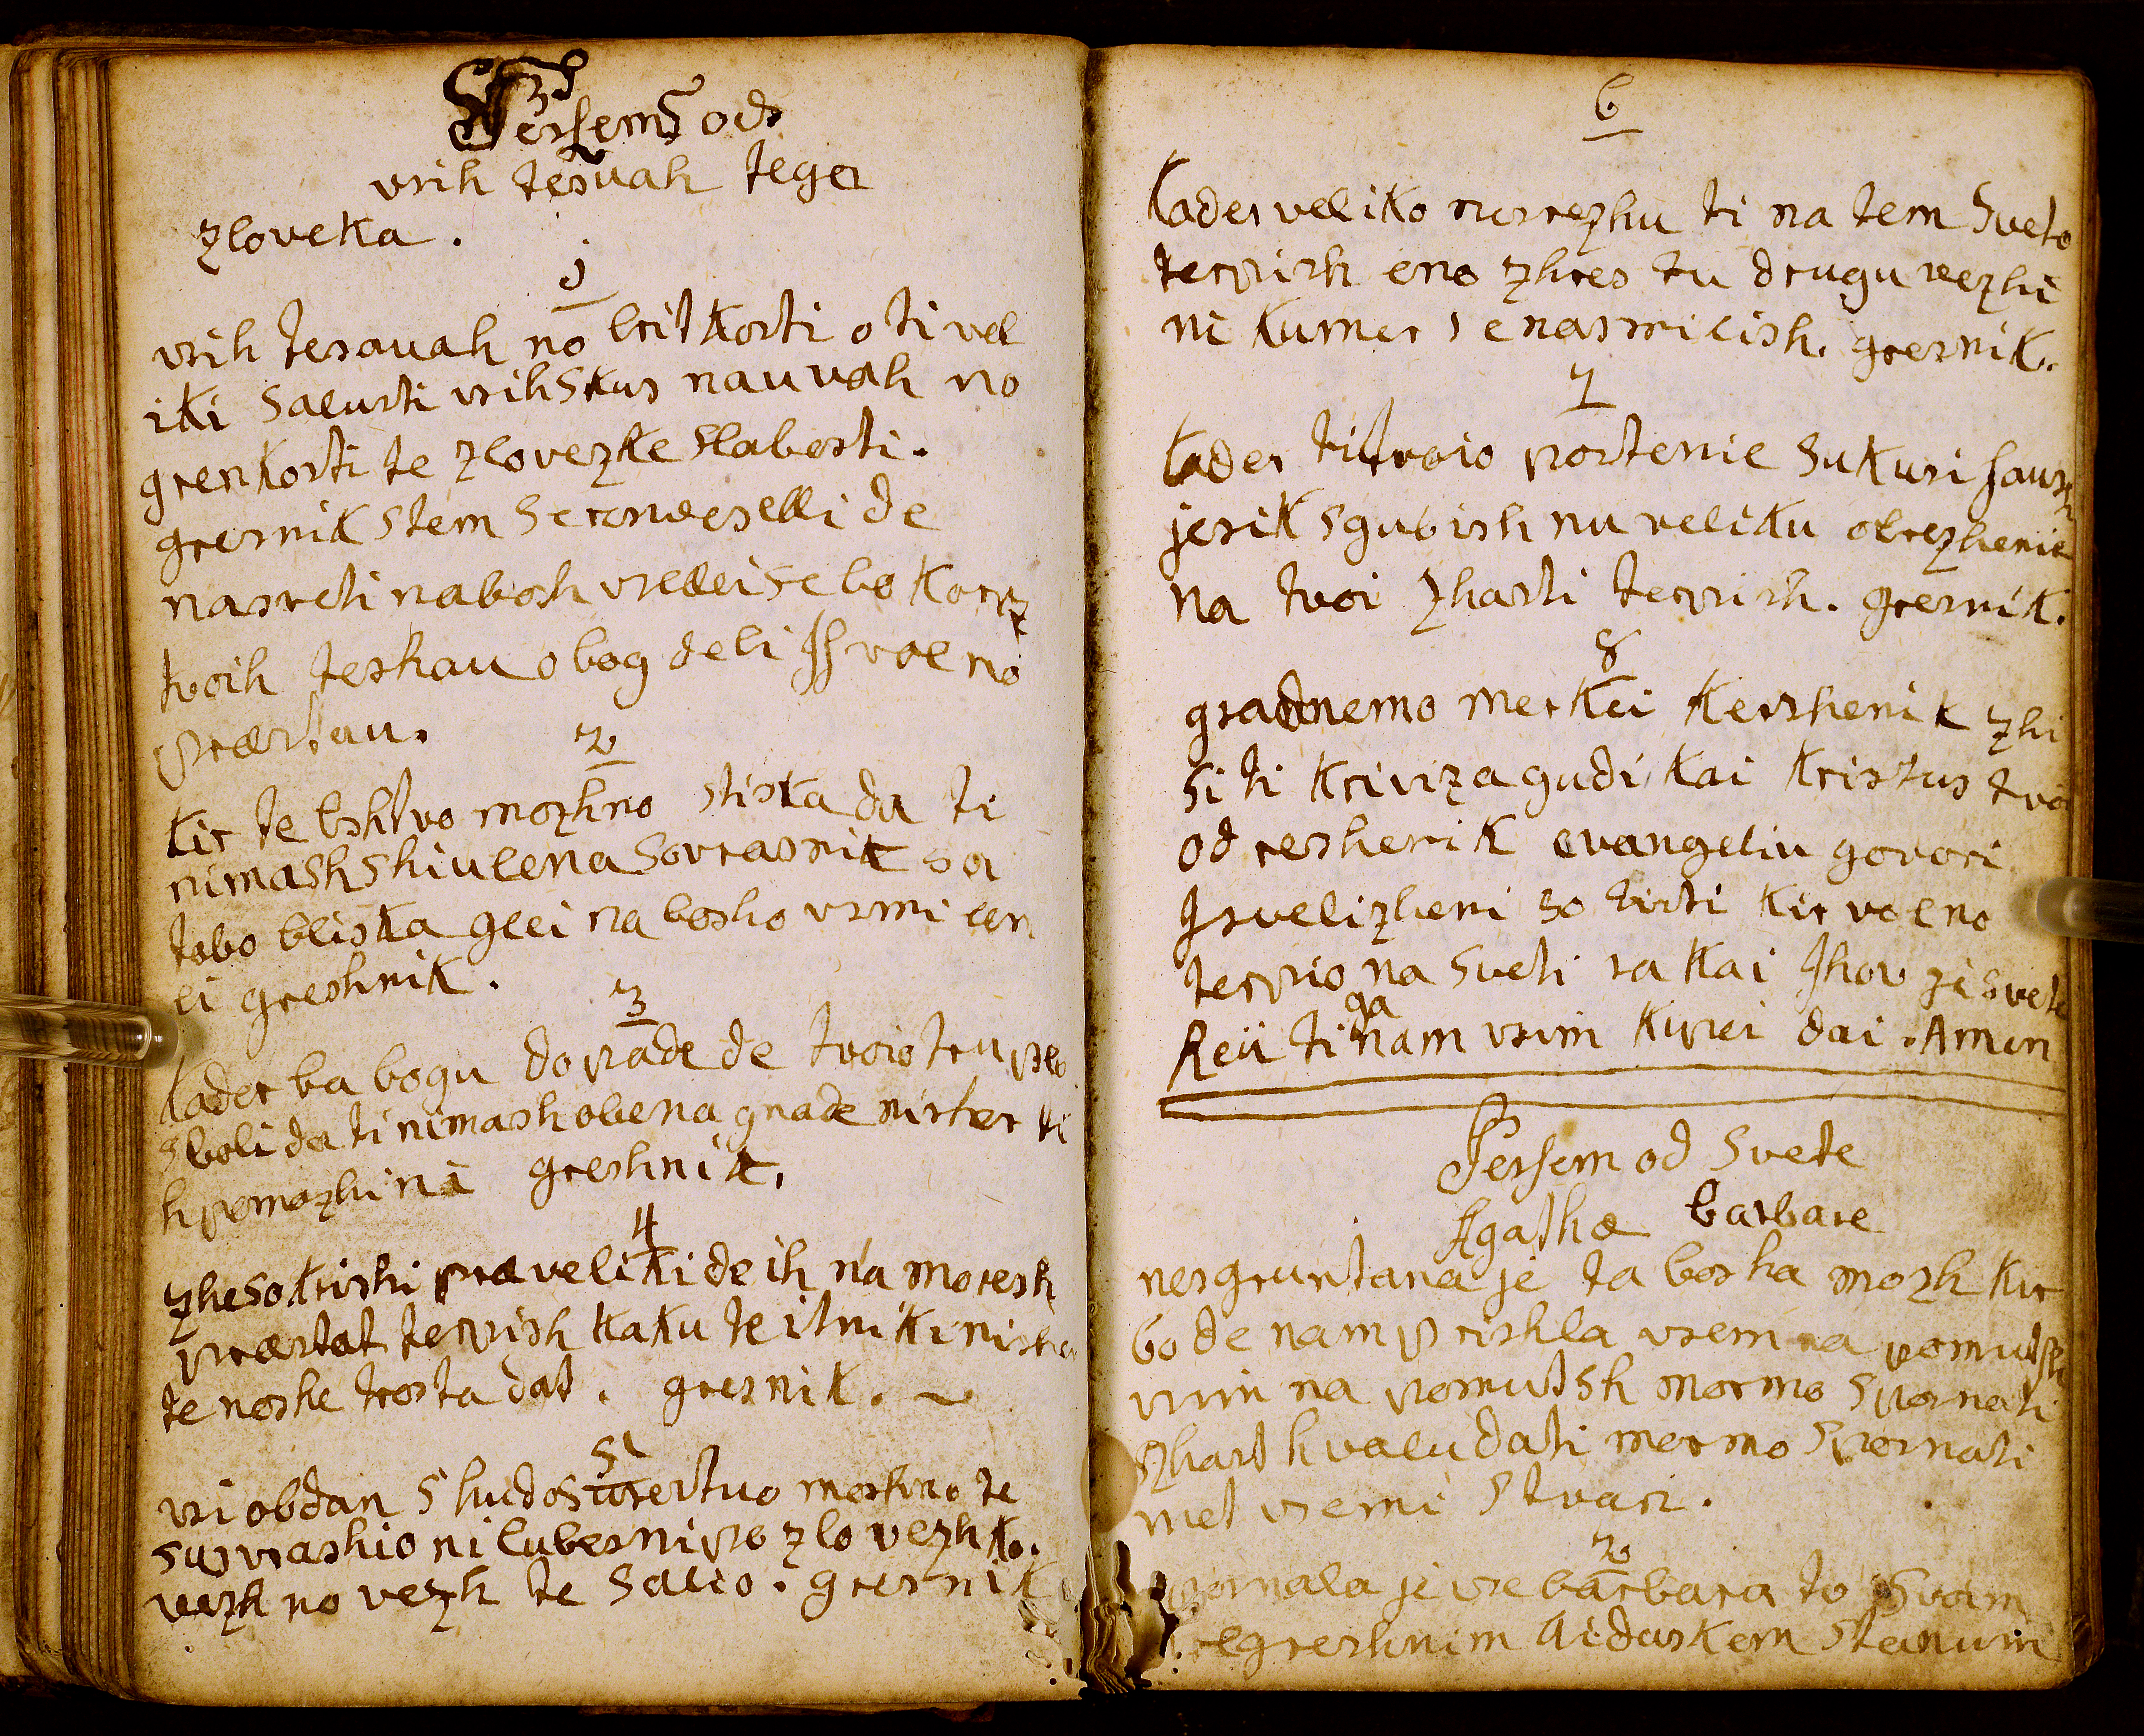 Persem od
vsih tesuah tega
zloveka.
1
vsih tesauah no britkosti o ti vel
iki salusti vsih skus nauvah no
grenkosti te zlovezke slabosti.
gresnik stem se resveselli de
nasveti nabosh vselei se bo
tvoih teshau o bog deli volno
præstau.
2
kir te bshtvo mozhno stiska da ti
nimash shiulena sovrasnik sa
tabo bliska glei na bosho vsmi len
ei greshnik.
3
kader ba bogu dopade de tvoio truplo
sboli da ti nimash obena gnade nisher ti
h pomozhi ni greshnik.
4
zhe so krishi præveliki de ih na moresh
præstat terpish kaku te ki nisha
te noshe trosta dat. gresnik.
5
vsi obdan s hudo te
ni lubesni po zlovezhko.
vezh no vezh te salio. gresnik
6
kader veliko nesrezhu ti na tem sveto
terpish eno zhres tu drugu vezhi
ni kumer se nasmilish. gresnik.
7
kader ti tvoio postenie
jesik sgubish nu veliku obrezhenie
na tvoi zhasti terpish. gresnik.
8
gradnemo merkei kershenik zhi
si ti kriviza gudi kai kristus tvoi
odreshenik evangeliu govori
Isvelizheni so tisti kir volno
terpio na sveti sa kai Ihov je svete
Reii ti ga nam vsim kupei dai. Amen
Persem od Svete
Agathæ barbare
nesgruntana je ta bosha mozh kir
bo de nam prishla vsem na
vsim na pomutsh mormo spomati
zhast hvalu dati mermo spomati
met vsemi stvari.
2
spomala je vse barbara to svoim